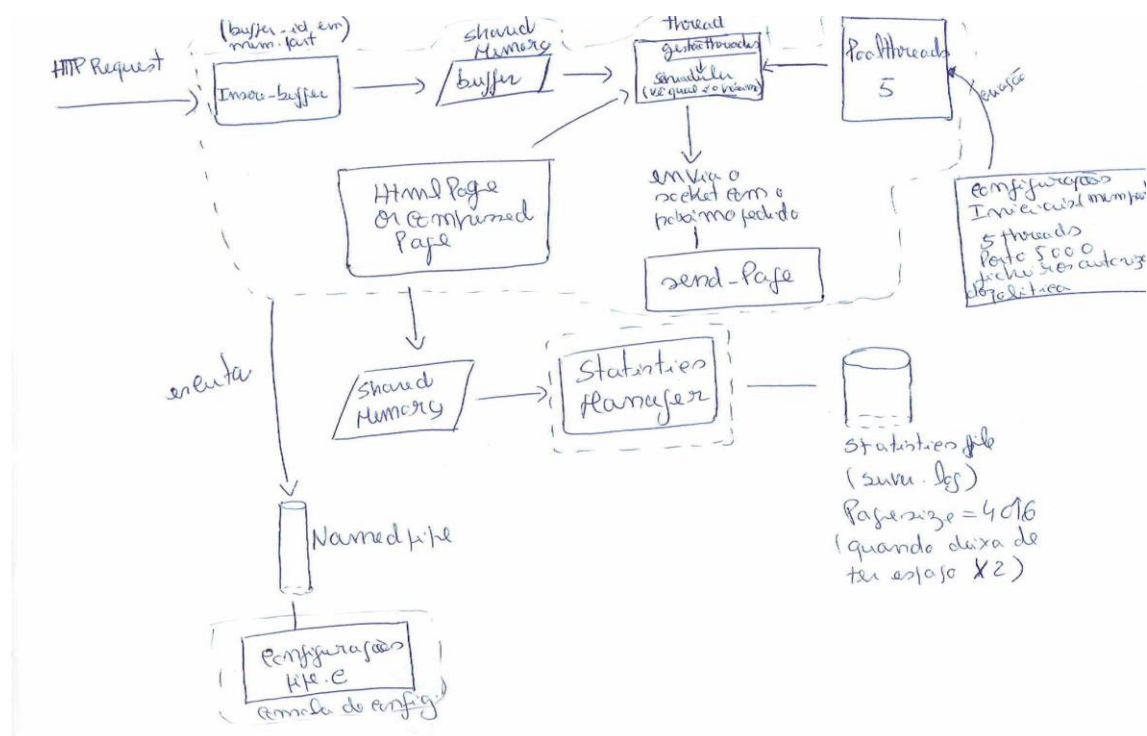 HTTP Request
(buffer-id em
mem. part
Insere-buffer
Shared
Memory
buffer
thread
gestão threads
(vê qual é o próximo)
Pool threads
5
criação
Configurações
Iniciais (mem part
5 threads
Porto 5000
ficheiros autoriza
dos política
Html Page
or Compressed
Page
envia o
socket com o
próximo pedido
send-Page
escuta
Shared
Memory
Statistics
Manager
Statistics file
(server.log)
Pagesize = 4096
(quando deixa de
ter espaço X2)
Named pipe
Configurações
pipe.c
consola de config.